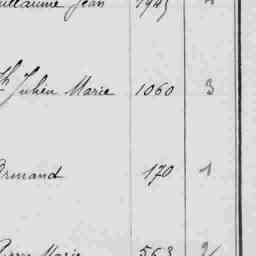 Guillaume Jean 1945
Julien Marie 1060 3
Armand 170 1
Pierre Marie 563 2